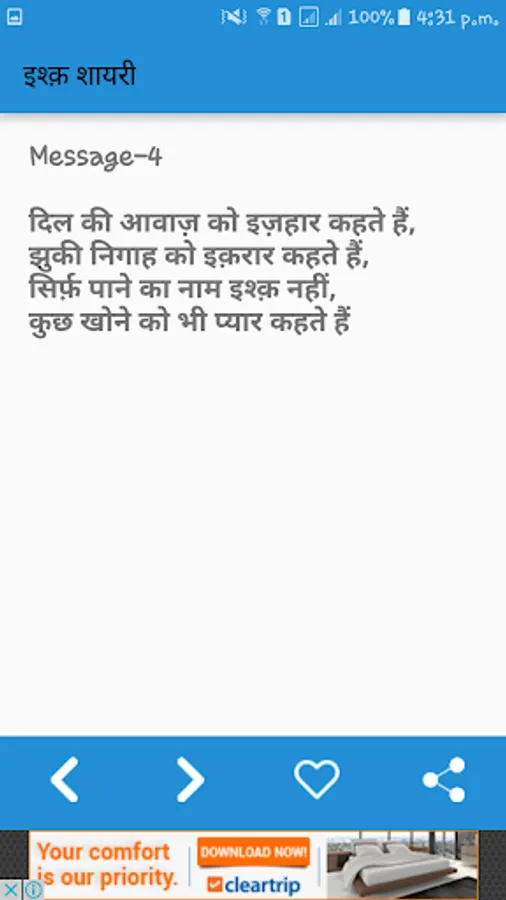 100% 4:31 p.m.
इश्क़ शायरी
Message-4
दिल की आवाज़ को इज़हार कहते हैं,
झुकी निगाह को इक़रार कहते हैं,
सिर्फ़ पाने का नाम इश्क़ नहीं,
कुछ खोने को भी प्यार कहते हैं
Your comfort
is our priority.
DOWNLOAD NOW!
cleartrip